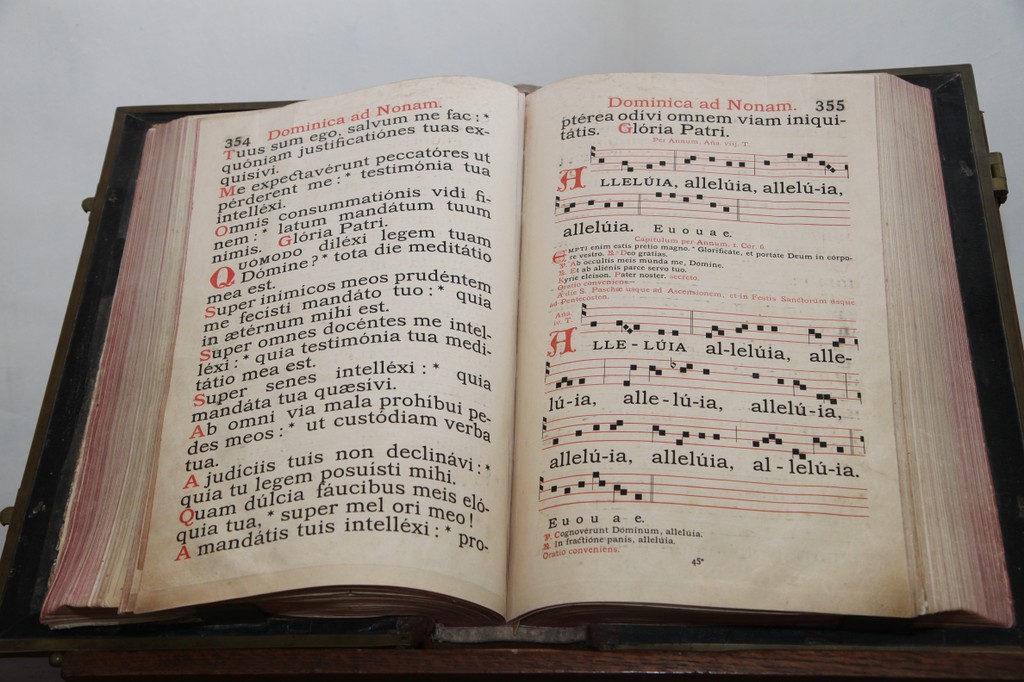 354
Dominica ad Nonam.
Tuus sum ego, salvum me fac : *
quóniam justificatiónes tuas ex-
quisívi.
Me expectavérunt peccatóres ut
pérderent me : * testimónia tua
intelléxi.
Omnis consummatiónis vidi fi-
nem : * latum mandátum tuum
nimis. Glória Patri.
QUOMODO diléxi legem tuam
Dómine ? * tota die meditátio
mea est.
Super inimicos meos prudéntem
me fecísti mandáto tuo : * quia
in ætérnum mihi est.
Super omnes docéntes me intel-
léxi : * quia testimónia tua medi-
tátio mea est.
Super senes intelléxi : * quia
mandáta tua quæsívi.
Ab omni via mala prohíbui pe-
des meos : * ut custódiam verba
tua.
A judíciis tuis non declinávi : *
quia tu legem posuísti mihi.
Quam dúlcia fáucibus meis eló-
quia tua, * super mel ori meo !
A mandátis tuis intelléxi : * pro-
Dominica ad Nonam. 355
ptérea odívi omnem viam iniqui-
tátis. Glória Patri.
Per Annum. Ana. viij. T.
ALLELÚIA, allelúia, allelú-ia,
allelúia. E u o u a e.
Capitulum per Annum. 1. Cor. 6.
EMPTI enim estis pretio magno. * Glorificáte, et portate Deum in córpo-
re vestro. ℟. Deo grátias.
℣. Ab occúltis meis munda me, Dómine.
℟. Et ab aliénis parce servo tuo.
Kyrie eléison. Pater noster. secreto.
Oratio conveniens.
A die S. Paschæ usque ad Ascensionem, et in Festis Sanctórum usque
ad Pentecosten.
Ana.
iv. T.
ALLE-LÚIA al-lelúia, alle-
lú-ia, alle-lú-ia, allelú-ia,
allelú-ia, allelúia, al-lelú-ia.
E u o u a e.
℣. Cognovérunt Dóminum, allelúia.
℟. In fractióne panis, allelúia.
Oratio conveniens.
45*